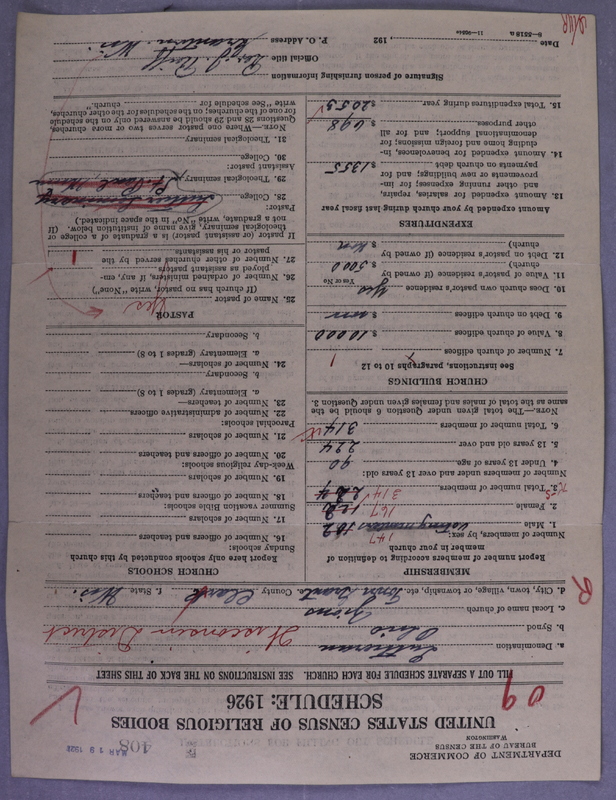 DEPARTMENT OF COMMERCE
BUREAU OF THE CENSUS
WASHINGTON
408
MAR 19 1928
UNITED STATES CENSUS OF RELIGIOUS BODIES
SCHEDULE: 1926
09
FILL OUT A SEPARATE SCHEDULE FOR EACH CHURCH. SEE INSTRUCTIONS ON THE BACK OF THIS SHEET
a. Denomination Lutheran
b. Synod Ohio Wisconsin District
c. Local name of church Zions
d. City, town, village, or township, etc. Town Grant e. County Clark f. State Wis.
R
MEMBERSHIP
Report number of members according to definition of member in your church
Number of members, by sex:
1. Male voting members 102 147
2. Female 122 167
3. Total number of members, 224 314
Number of members under and over 13 years old:
4. Under 13 years of age 90
5. 13 years old and over 224
6. Total number of members 314
NOTE.—The total given under Question 6 should be the
same as the total of males and females given under Question 3.
CHURCH BUILDINGS
See instructions, paragraphs 10 to 12
7. Number of church edifices 1
8. Value of church edifices $ 10000
9. Debt on church edifices $ non
10. Does church own pastor's residence yes
Yes or No
11. Value of pastor's residence (if owned by
church) $ 5000
12. Debt on pastor's residence (if owned by
church) $ non
EXPENDITURES
Amount expended by your church during last fiscal year
13. Amount expended for salaries, repairs,
and other running expenses; for im-
provements or new buildings; and for
payments on church debt $ 1355
14. Amount expended for benevolences, in-
cluding home and foreign missions; for
denominational support; and for all
other purposes $ 698
15. Total expenditures during year $ 2053
CHURCH SCHOOLS
Report here only schools conducted by this church
Sunday schools:
16. Number of officers and teachers
17. Number of scholars
Summer vacation Bible schools:
18. Number of officers and teachers
19. Number of scholars
Week-day religious schools:
20. Number of officers and teachers
21. Number of scholars
Parochial schools:
22. Number of administrative officers
23. Number of teachers—
a. Elementary (grades 1 to 8)
b. Secondary
24. Number of scholars—
a. Elementary (grades 1 to 8)
b. Secondary
PASTOR
25. Name of pastor yes
(If church has no pastor, write "None")
26. Number of ordained ministers, if any, em-
ployed as assistant pastors
27. Number of other churches served by the
pastor or his assistants 1
If pastor (or assistant pastor) is a graduate of a college or
theological seminary, give name of institution below. (If
not a graduate, write "No" in the space indicated.)
Pastor:
28. College Luther Seminary
29. Theological seminary St. Paul, Minn
Assistant pastor:
30. College
31. Theological seminary
NOTE.—Where one pastor serves two or more churches,
Questions 28 and 29 should be answered only on the schedule
for one of the churches; on the schedules for the other churches,
write "See schedule for church."
Signature of person furnishing information
Official title
P. O. Address Granton, Wis.
Date , 192
6—5518 a